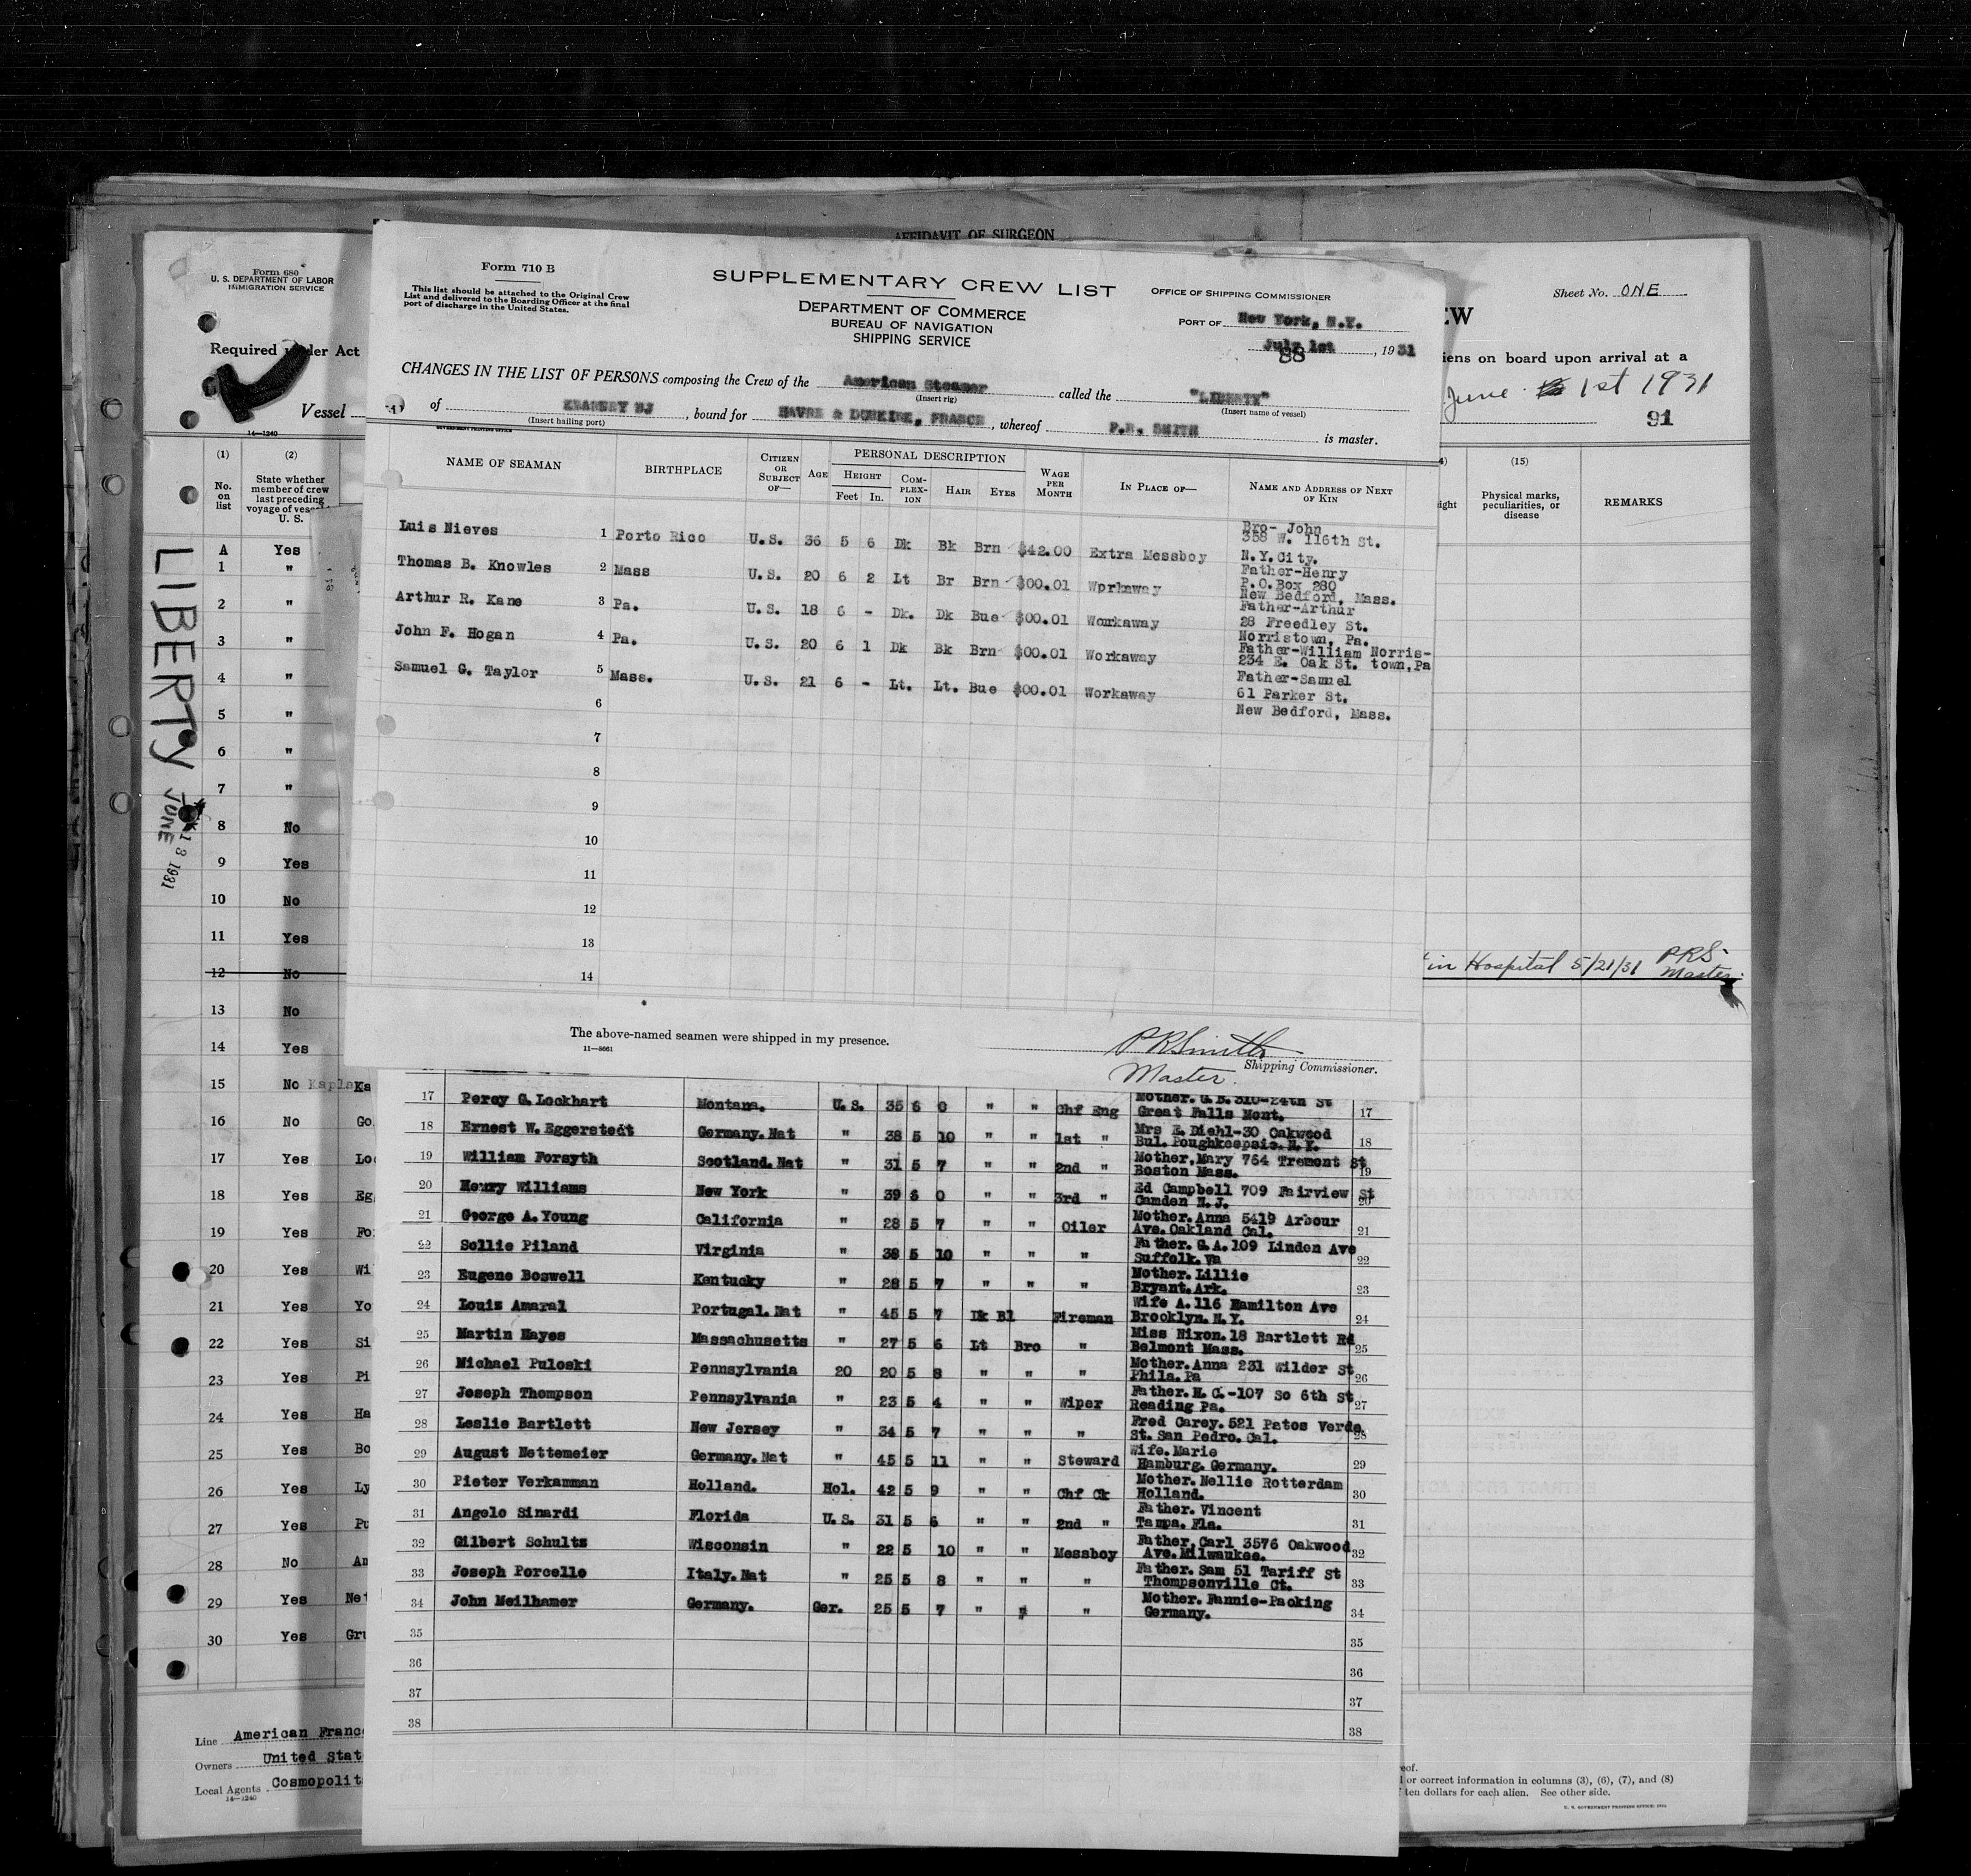 AFFIDAVIT OF SURGEON
Form 680
U. S. DEPARTMENT OF LABOR
IMMIGRATION SERVICE
Required under Act
Vessel
14—1240
(1) (2)
No. on list
State whether member of crew last preceding voyage of vessel U. S.
LIBERTY JUNE
13 1931
A Yes
1 "
2 "
3 "
4 "
5 "
6 "
7 "
8 No
9 Yes
10 No
11 Yes
12 No
13 No
14 Yes
15 No Kapla Ka
16 No Go
17 Yes Loc
18 Yes Eg
19 Yes Fo
20 Yes Wi
21 Yes Yo
22 Yes Si
23 Yes Pi
24 Yes Ha
25 Yes Bo
26 Yes Ly
27 Yes Pu
28 No An
29 Yes Net
30 Yes Gru
Line American France
Owners United Stat
Local Agents Cosmopolit
14—1240
Form 710 B
This list should be attached to the Original Crew
List and delivered to the Boarding Officer at the final
port of discharge in the United States.
SUPPLEMENTARY CREW LIST
DEPARTMENT OF COMMERCE
BUREAU OF NAVIGATION
SHIPPING SERVICE
OFFICE OF SHIPPING COMMISSIONER
PORT OF New York, N.Y.
July 1st, 1931
88
CHANGES IN THE LIST OF PERSONS composing the Crew of the American Steamer called the "LIBERTY"
(Insert rig) (Insert name of vessel)
of KEARNEY NJ, bound for HAVRE & DUNKIRK, FRANCE, whereof P.R. SMITH is master.
(Insert hailing port)
GOVERNMENT PRINTING OFFICE
NAME OF SEAMAN BIRTHPLACE CITIZEN OR SUBJECT OF— AGE PERSONAL DESCRIPTION HEIGHT Feet In. COMPLEXION HAIR EYES WAGE PER MONTH IN PLACE OF— NAME AND ADDRESS OF NEXT OF KIN
Luis Nieves 1 Porto Rico U.S. 36 5 6 Dk Bk Brn $42.00 Extra Messboy Bro- John
358 W. 116th St.
N.Y.City.
Thomas B. Knowles 2 Mass U.S. 20 6 2 Lt Br Brn $00.01 Workaway Father-Henry
P.O.Box 280
New Bedford, Mass.
Arthur R. Kane 3 Pa. U.S. 18 6 - Dk. Dk Bue $00.01 Workaway Father-Arthur
28 Freedley St.
Norristown, Pa.
John F. Hogan 4 Pa. U.S. 20 6 1 Dk Bk Brn $00.01 Workaway Father-William Norris-
234 E. Oak St. town,Pa
Samuel G. Taylor 5 Mass. U.S. 21 6 - Lt. Lt. Bue $00.01 Workaway Father-Samuel
61 Parker St.
New Bedford, Mass.
6
7
8
9
10
11
12
13
14
The above-named seamen were shipped in my presence.
11—8661
PRSmith
Master. Shipping Commissioner.
17 Percy G. Lockhart Montana. U.S. 35 6 0 " " Chf Eng Mother. G.B. 310-24th St
Great Falls Mont. 17
18 Ernest W. Eggerstedt Germany.Nat " 38 5 10 " " 1st " Mrs E. Diehl-30 Oakwood
Bul. Poughkeepsie.N.Y. 18
19 William Forsyth Scotland.Nat " 31 5 7 " " 2nd " Mother.Mary 764 Tremont St
Boston Mass. 19
20 Henry Williams New York " 39 6 0 " " 3rd " Ed Campbell 709 Fairview St
Camden N.J. 20
21 George A.Young California " 28 5 7 " " Oiler Mother.Anna 5419 Arbour
Ave.Oakland Cal. 21
22 Sollie Piland Virginia " 38 5 10 " " " Father. G.A.109 Linden Ave
Suffolk.Va 22
23 Eugene Boswell Kentucky " 28 5 7 " " " Mother.Lillie
Bryant.Ark. 23
24 Louis Amaral Portugal.Nat " 45 5 7 Dk Bl Fireman Wife A.116 Hamilton Ave
Brooklyn.N.Y. 24
25 Martin Hayes Massachusetts " 27 5 6 Lt Bro " Miss Nixon.18 Bartlett Rd
Belmont Mass. 25
26 Michael Puloski Pennsylvania 20 20 5 8 " " " Mother.Anna 231 Wilder St
Phila.Pa 26
27 Joseph Thompson Pennsylvania " 23 5 4 " " Wiper Father.H.C.-107 So 6th St
Reading Pa. 27
28 Leslie Bartlett New Jersey " 34 5 7 " " " Fred Carey.521 Patos Verde
St.San Pedro.Cal. 28
29 August Nettemeier Germany.Nat " 45 5 11 " " Steward Wife.Marie
Hamburg.Germany. 29
30 Pieter Verkamman Holland. Hol. 42 5 9 " " Chf Ck Mother.Nellie Rotterdam
Holland. 30
31 Angelo Sinardi Florida U.S. 31 5 6 " " 2nd " Father.Vincent
Tampa.Fla. 31
32 Gilbert Schultz Wisconsin " 22 5 10 " " Messboy Father.Carl 3576 Oakwood
Ave.Milwaukee. 32
33 Joseph Porcello Italy.Nat " 25 5 8 " " " Father.Sam 51 Tariff St
Thompsonville Ct. 33
34 John Meilhamer Germany. Ger. 25 5 7 " " " Mother.Fannie-Packing
Germany. 34
35 35
36 36
37 37
38 38
Sheet No. ONE
EW
iens on board upon arrival at a
June 1st 1931
91
(15)
ight
Physical marks, peculiarities, or disease
REMARKS
in Hospital 5/21/31 PRS
Master.
reof.
or correct information in columns (3), (6), (7), and (8)
ten dollars for each alien. See other side.
U. S. GOVERNMENT PRINTING OFFICE